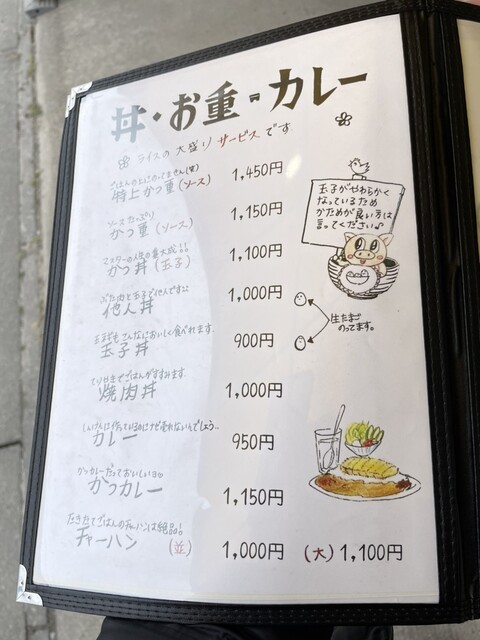 丼・お重・カレー
ライスの大盛りサービスです
ごはんの上にのってません(笑)
特上かつ重(ソース) 1,450円
ソースたっぷり
かつ重(ソース) 1,150円
マスターの人生の集大成!!
かつ丼(玉子) 1,100円
ぶた肉と玉子で他人ですよ
他人丼 1,000円
玉子丼 900円
生たまご
のってます。
てりやきでごはんがすすみます
焼肉丼 1,000円
しんけんに作っているのになぜ売れないんでしょう..
カレー 950円
かつカレーだっておいしいヨ
かつカレー 1,150円
たきたてごはんのチャーハンは絶品!
チャーハン (並) 1,000円 (大) 1,100円
玉子がやわらかく
なっているため
かためが良い方は
言ってください♪